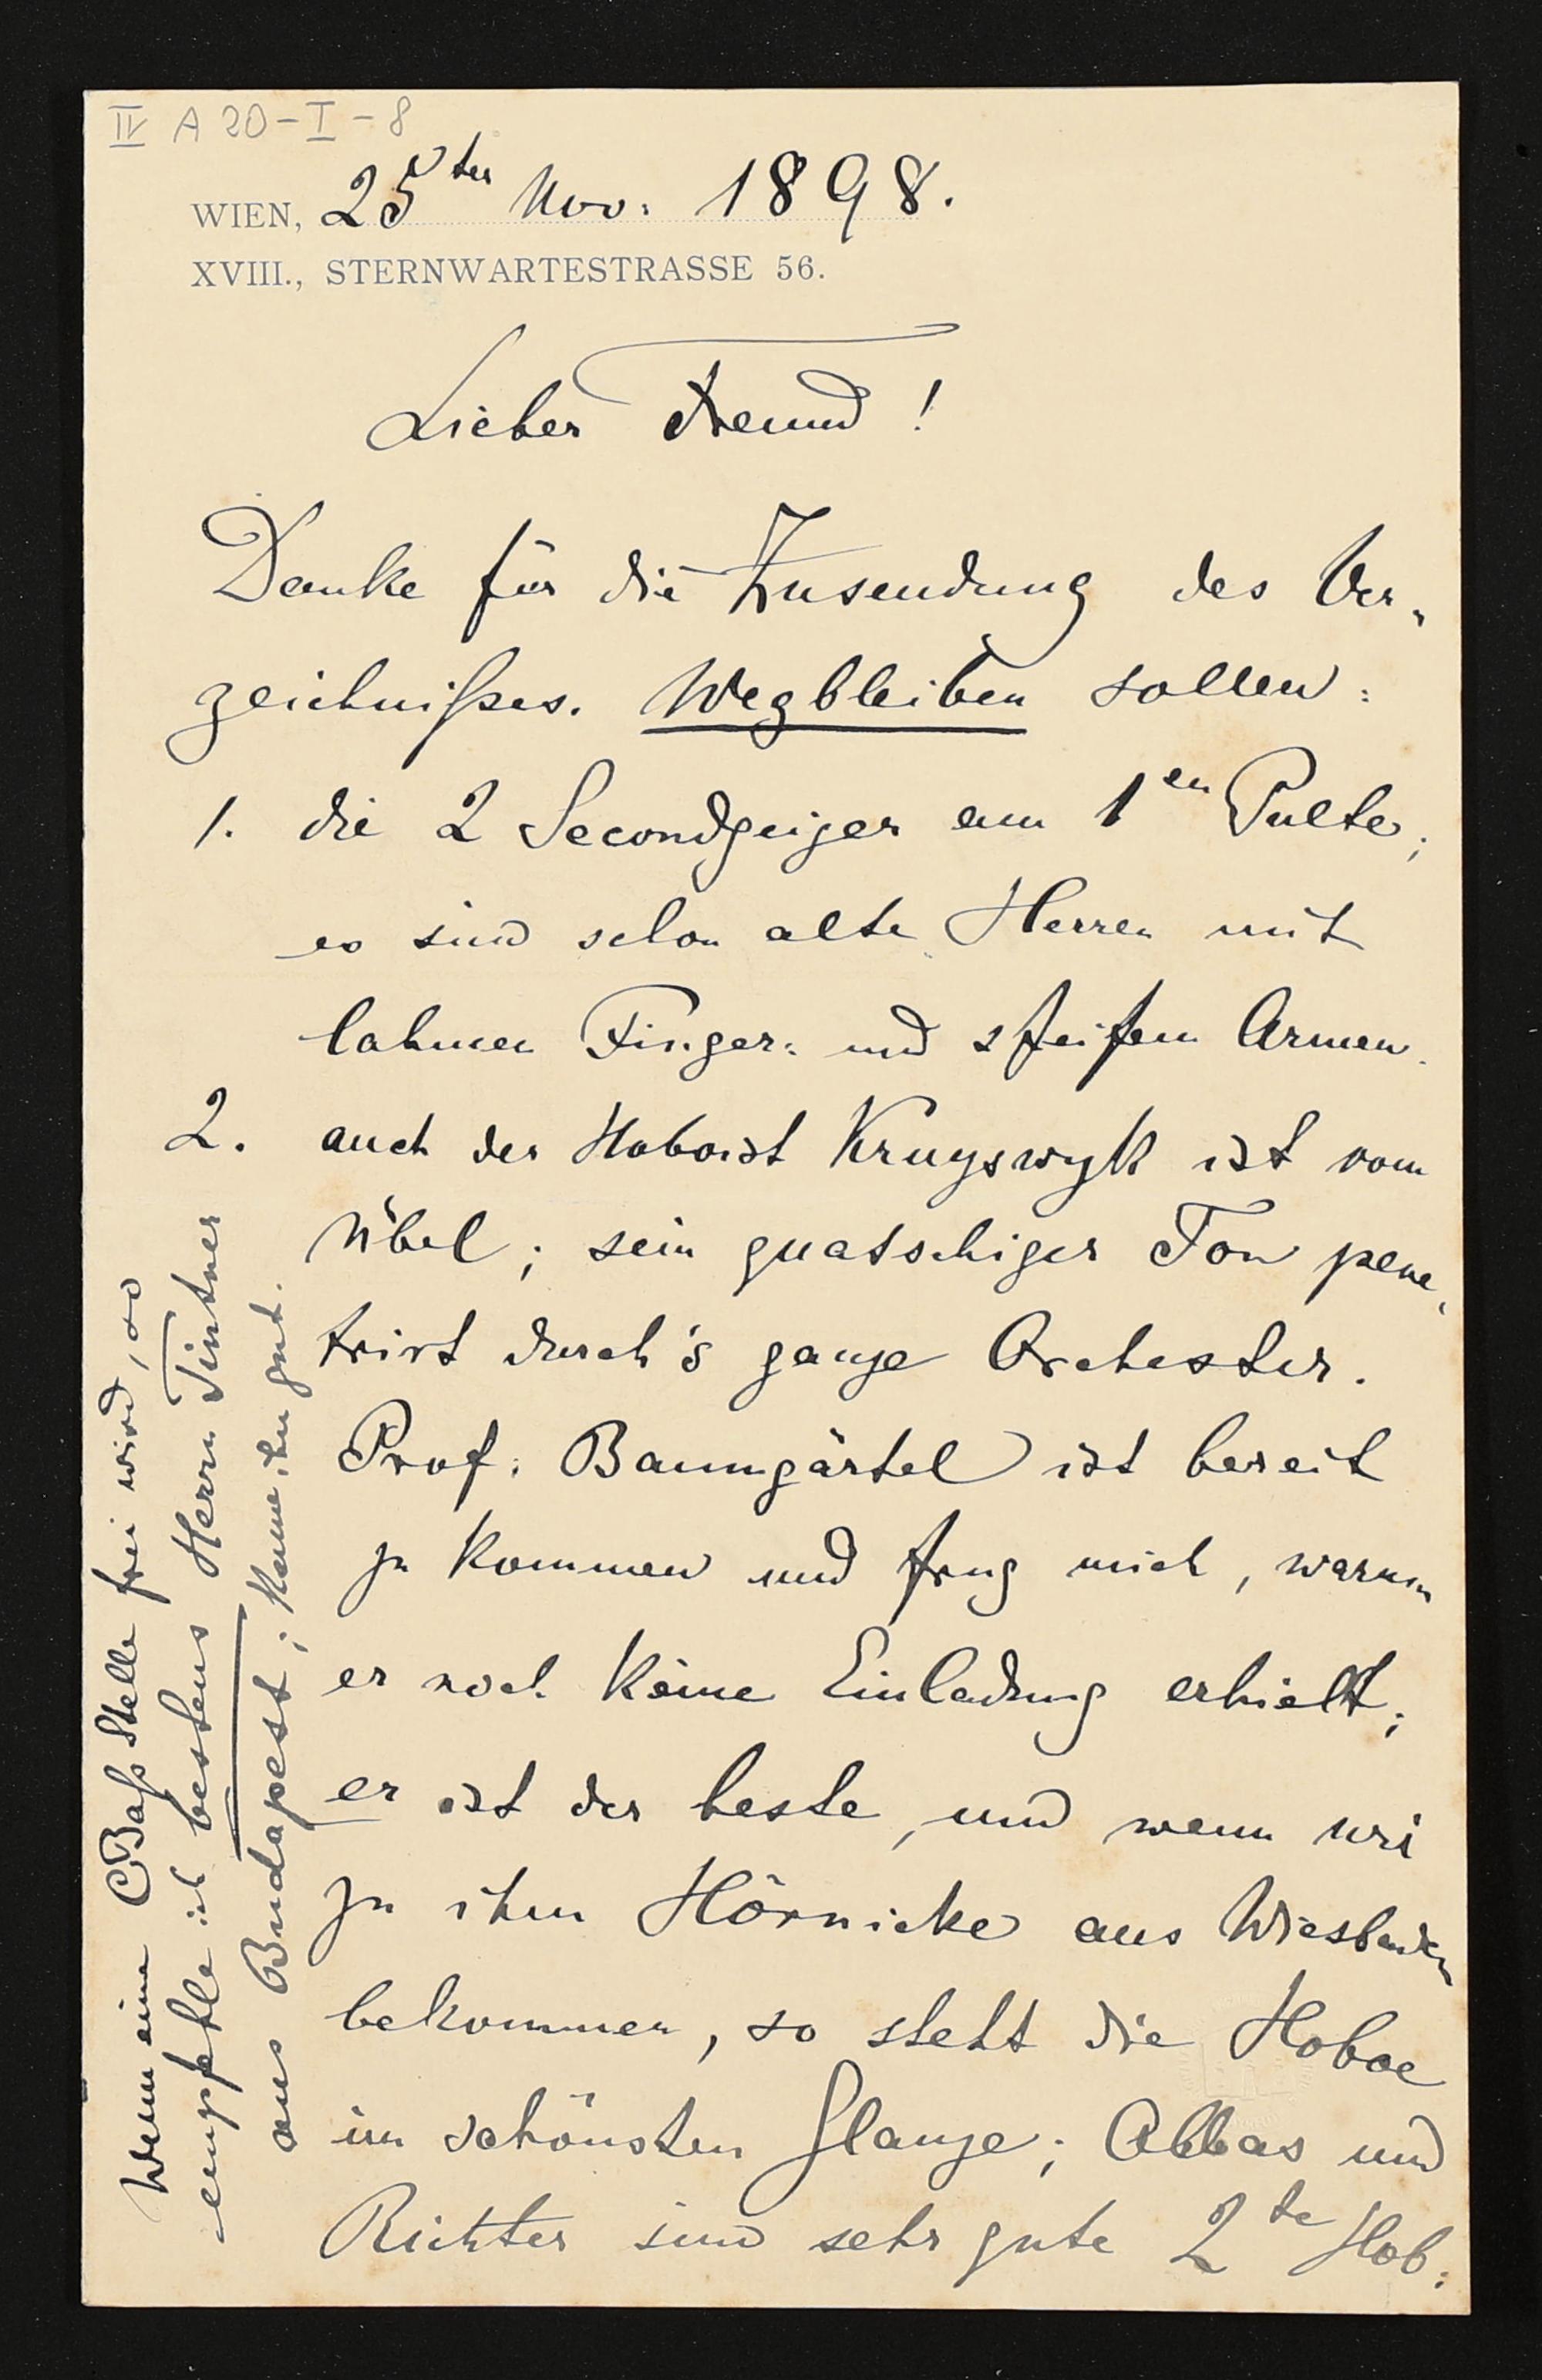 IV A 20-I-8
WIEN, 25ten Nov. 1898.
XVIII., STERNWARTESTRASSE 56.
Lieber Freund!
Danke für die Zusendung des Ver-
zeichnißes. Wegbleiben sollen:
1. die 2 Secondgeiger am 1en Pulte;
es sind schon alte Herren mit
lahmen Finger: und steifem Armen.
2. auch der Hoboist Kruyswyk ist vom
Übel; sein quatschiger Ton pene-
trirt durch's ganze Orchester.
Prof. Baumgärtel ist bereit
zu kommen und frug mich, warum
er noch keine Einladung erhielt;
er ist der beste, und wenn wir
zu ihm Hörnicke aus Wiesbaden
bekommen, so steht die Hoboe
im schönsten Glanze; Abbas und
Richter sind sehr gute 2te Hob:
Wenn eine CBaß Stelle frei wird, so
empfehle ich bestens Herrn Tintner
aus Budapest; kenne ihn gut.